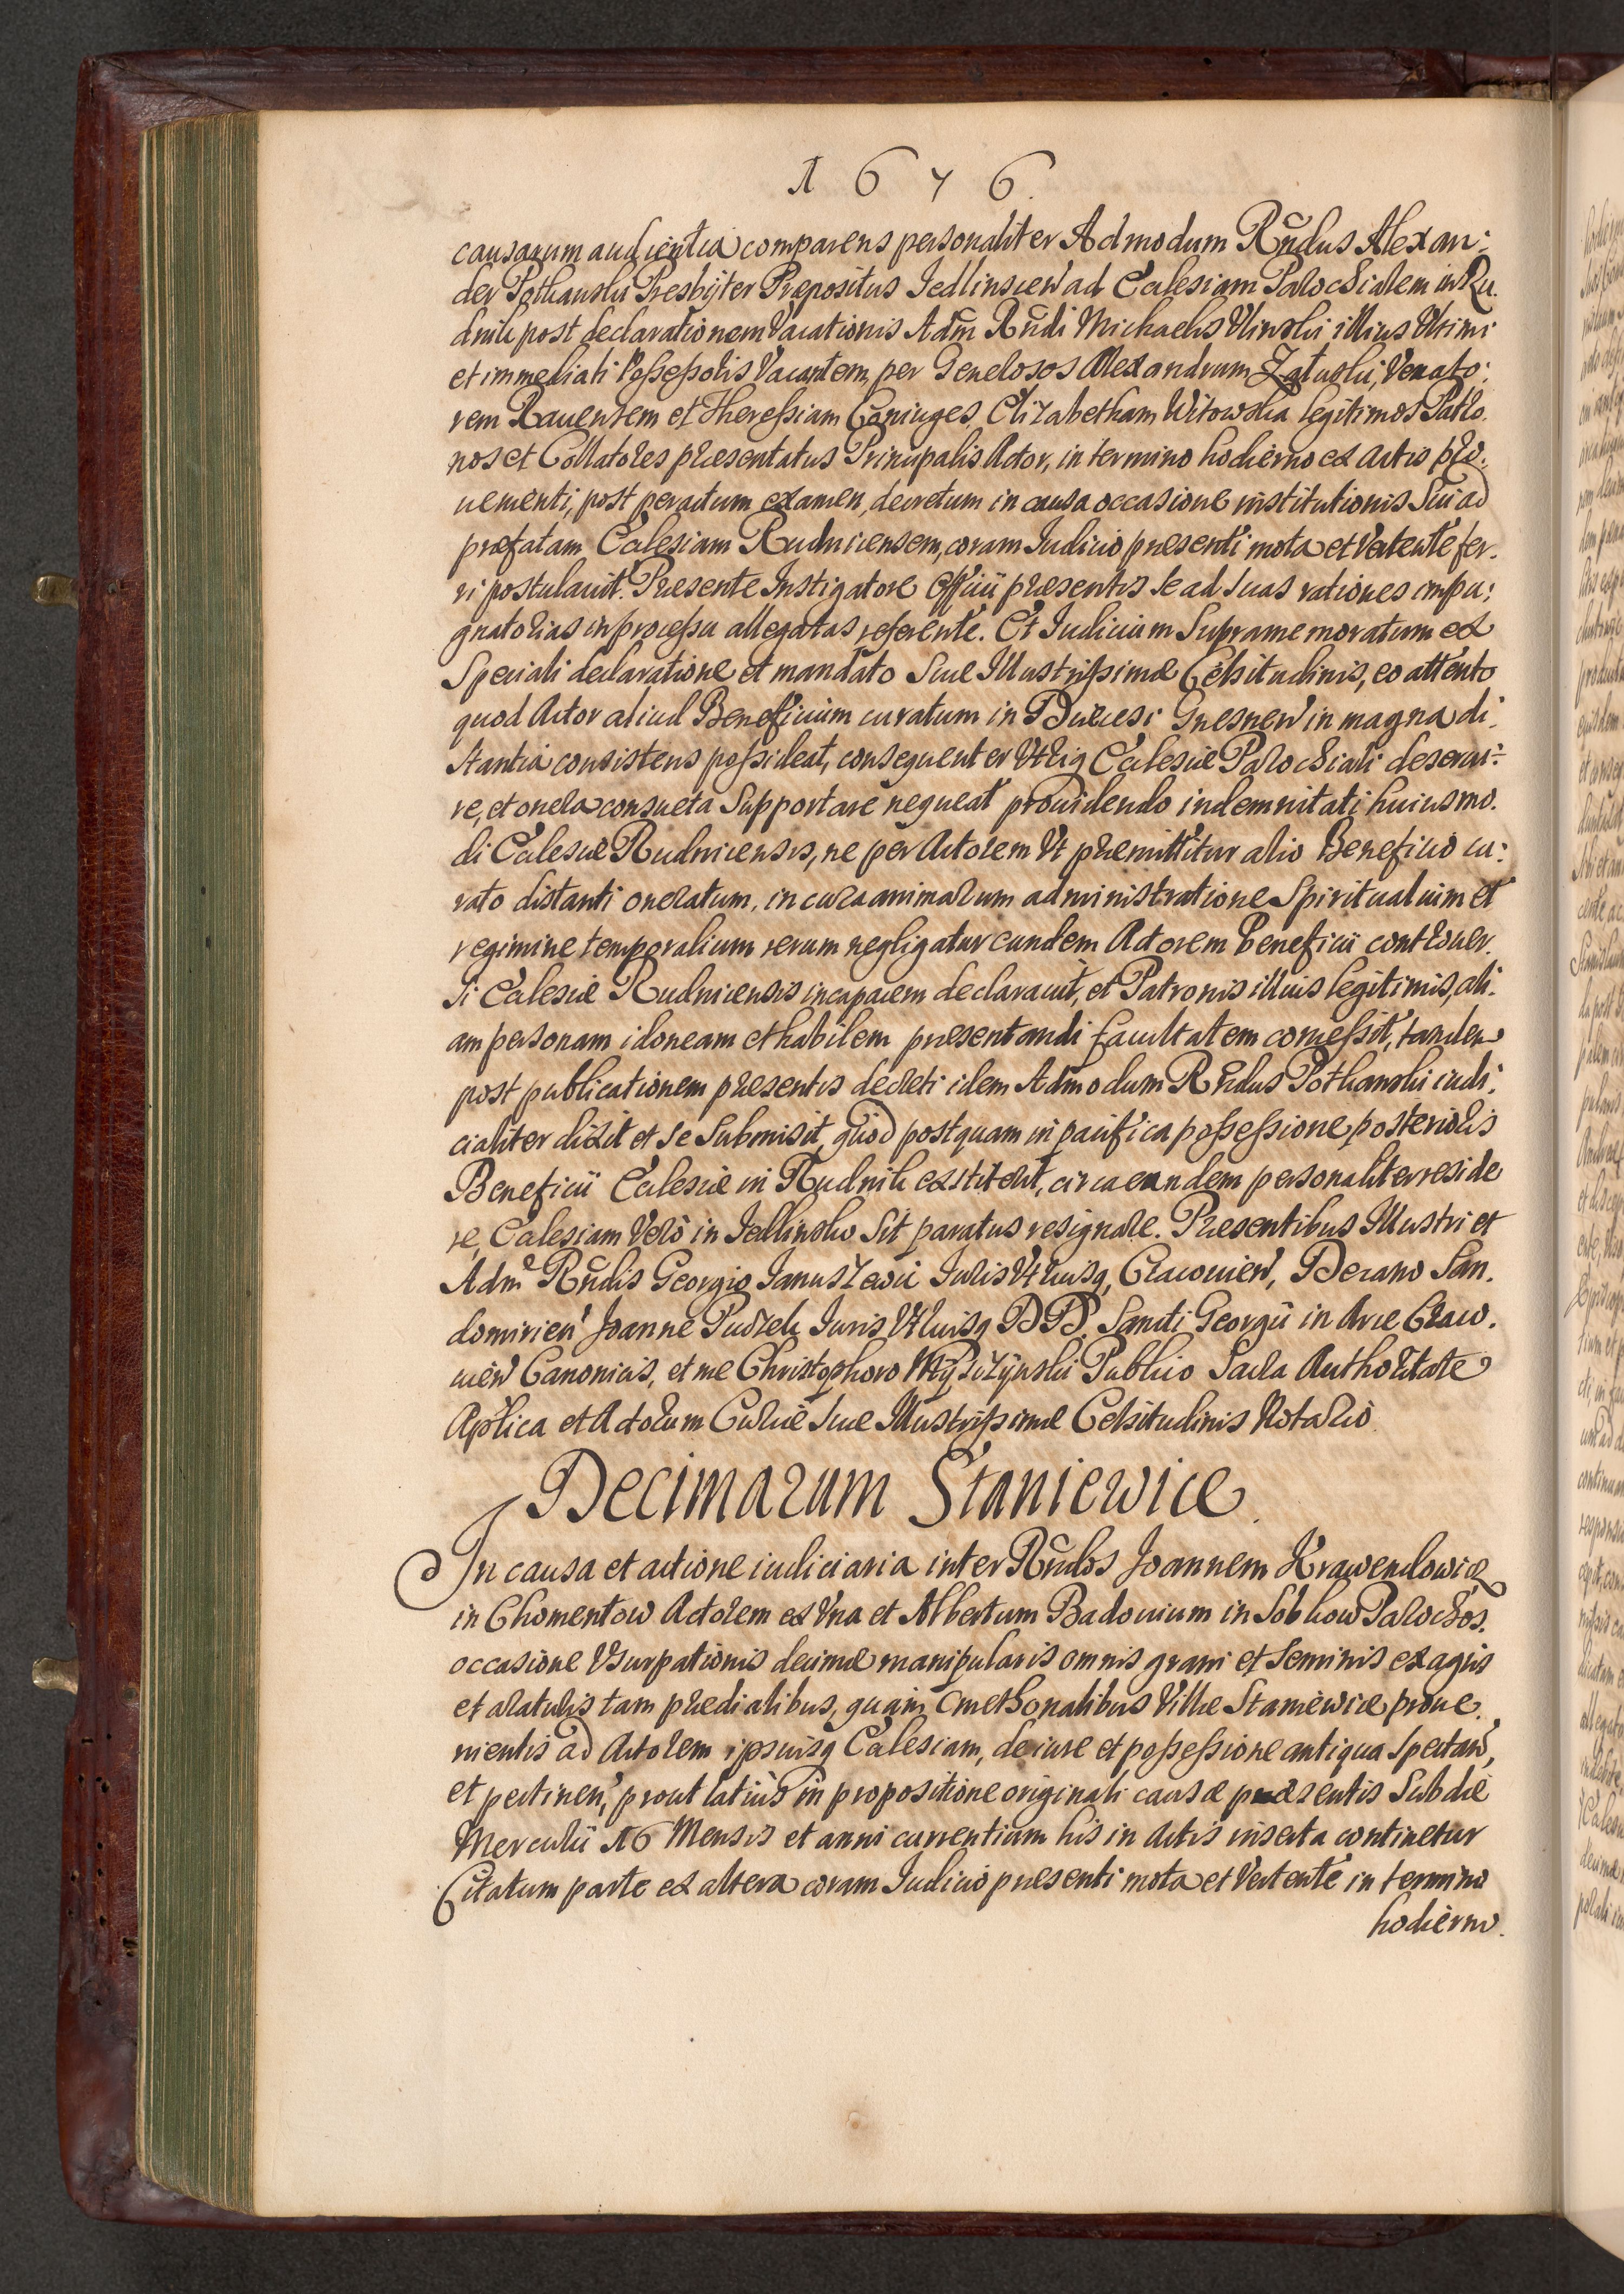 1676.
causarum audientia comparens personaliter Admodum Rñdus Alexan:
der Pothanski Presbyter Præpositus Jedlinscen ad Ecclesiam Parochialem in Ru.
dnik post declarationem Vacationis Adm Rndi Michaelis Ulinski illius Ultimi
et immediati Possessoris Vacantem, per Generosos Alexandrum Zatuski, Venato:
rem Ravensem et Theressiam Coniuges, Elizabetham Witowska legitimos Patro
nos et Collatores præsentatus Principalis Actor, in termino hodierno ex actis pro:
uementi, post peractum examen, decretum in causa occasione institutionis Sui ad
præfatam Ecclesiam Rudnicensem, coram Iudicio præsenti mota et Vertente fer.
ri postulauit. Præsente Instigatore Officii præsentis se ad suas rationes impu:
gnatorias in processu allegatas referente. Et Iudicium Supramemoratum ex
Speciali declaratione et mandato Suæ Illustrissimæ Celsitudinis, eo attento
quod Actor aliud Beneficium curatum in Diæcesi Gnesnen in magna di.
stantia consistens possideat, consequenter Utriq Ecclesiæ Parochiali deserui:
re, et onera consueta Supportare nequeat prouidendo indemnitati huiusmo.
di Ecclesiæ Rudnicensis, ne per Actorem Ut præmittitur alio Beneficio cu:
rato distanti oneratum, in cura animarum administratione Spiritualium et
regimine temporalium rerum negligatur eundem Actorem Beneficii controuer.
si Ecclesiæ Rudnicensis incapacem declarauit, et Patronis illius legitimis, ali.
am personam idoneam et habilem præsentandi facultatem concessit, tandem
post publicationem præsentis decreti idem Admodum Rñdus Pothanski iudi:
cialiter dixit et se Submisit, quod postquam in pacifica possessione posterioris
Beneficii Ecclesiæ in Rudnik exstiterit, circa eandem personaliter reside
re, Ecclesiam Verò in Jedlinsko Sit paratus resignare. Præsentibus Illustri et
Adm Rñdis Georgio Januszewic Iuris Utriusq, Cracouien, Decano San.
domirien Joanne Pudzek Iuris Utriusq DD, Sancti Georgii in Arce Craco.
uien Canonicis, et me Christophoro Myszczynski Publico Sacra Authoritate
Aplica et Actorum Curiæ Suæ Illustrissimæ Celsitudinis Notario
Decimarum Staniewice.
In causa et actione iudiciaria inter Rñdos Joannem Krawendowicz
in Chomentow Actorem ex Vna et Albertum Badouium in Sobkow Parochos.
occasione Vsurpationis decimæ manipularis omnis grani et Seminis ex agris
et araturis tam prædialibus, quam Cmethonalibus Villæ Staniewice proue.
nientis ad Actorem ipsiusq Ecclesiam, de iure et possessione antiqua Spectan,
et pertinen, prout latius in propositione originali causæ præsentis Sub die
Mercurii 16 Mensis et anni currentium his in Actis inserta continetur
Citatum parte ex altera coram Iudicio præsenti mota et Vertente in termino
hodierno.